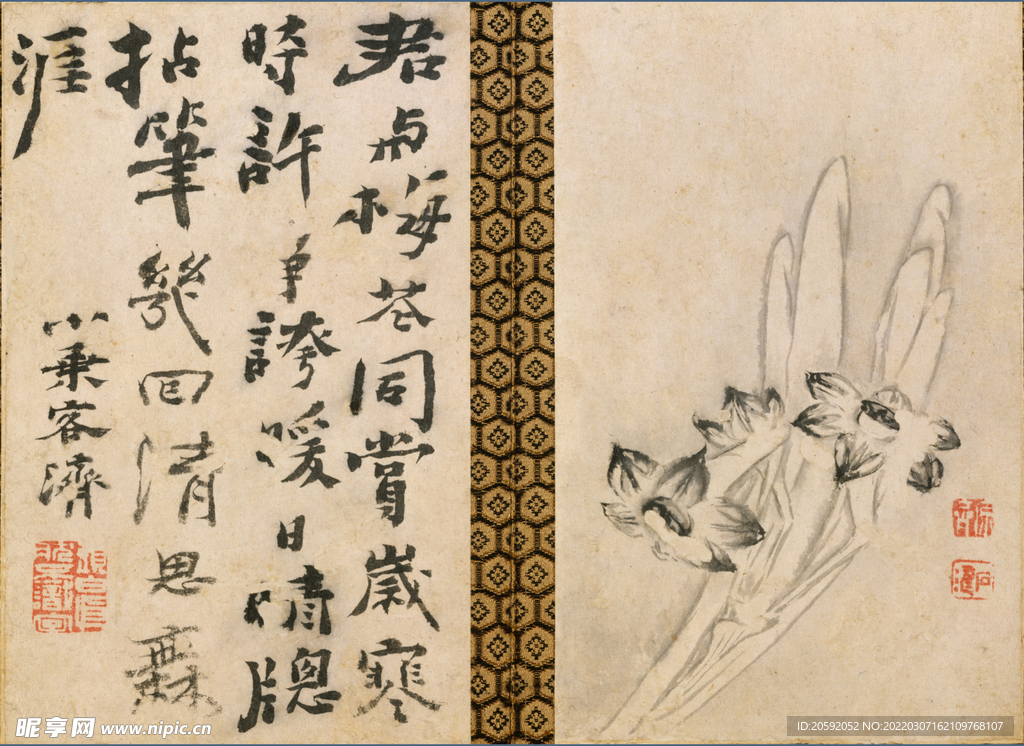 君与梅花同赏歲寒
時許争誇暖日晴牕
拈筆幾回清思無
涯
小乗客濟
昵享网 www.nipic.cn
ID:20592052 NO:20220307162109768107